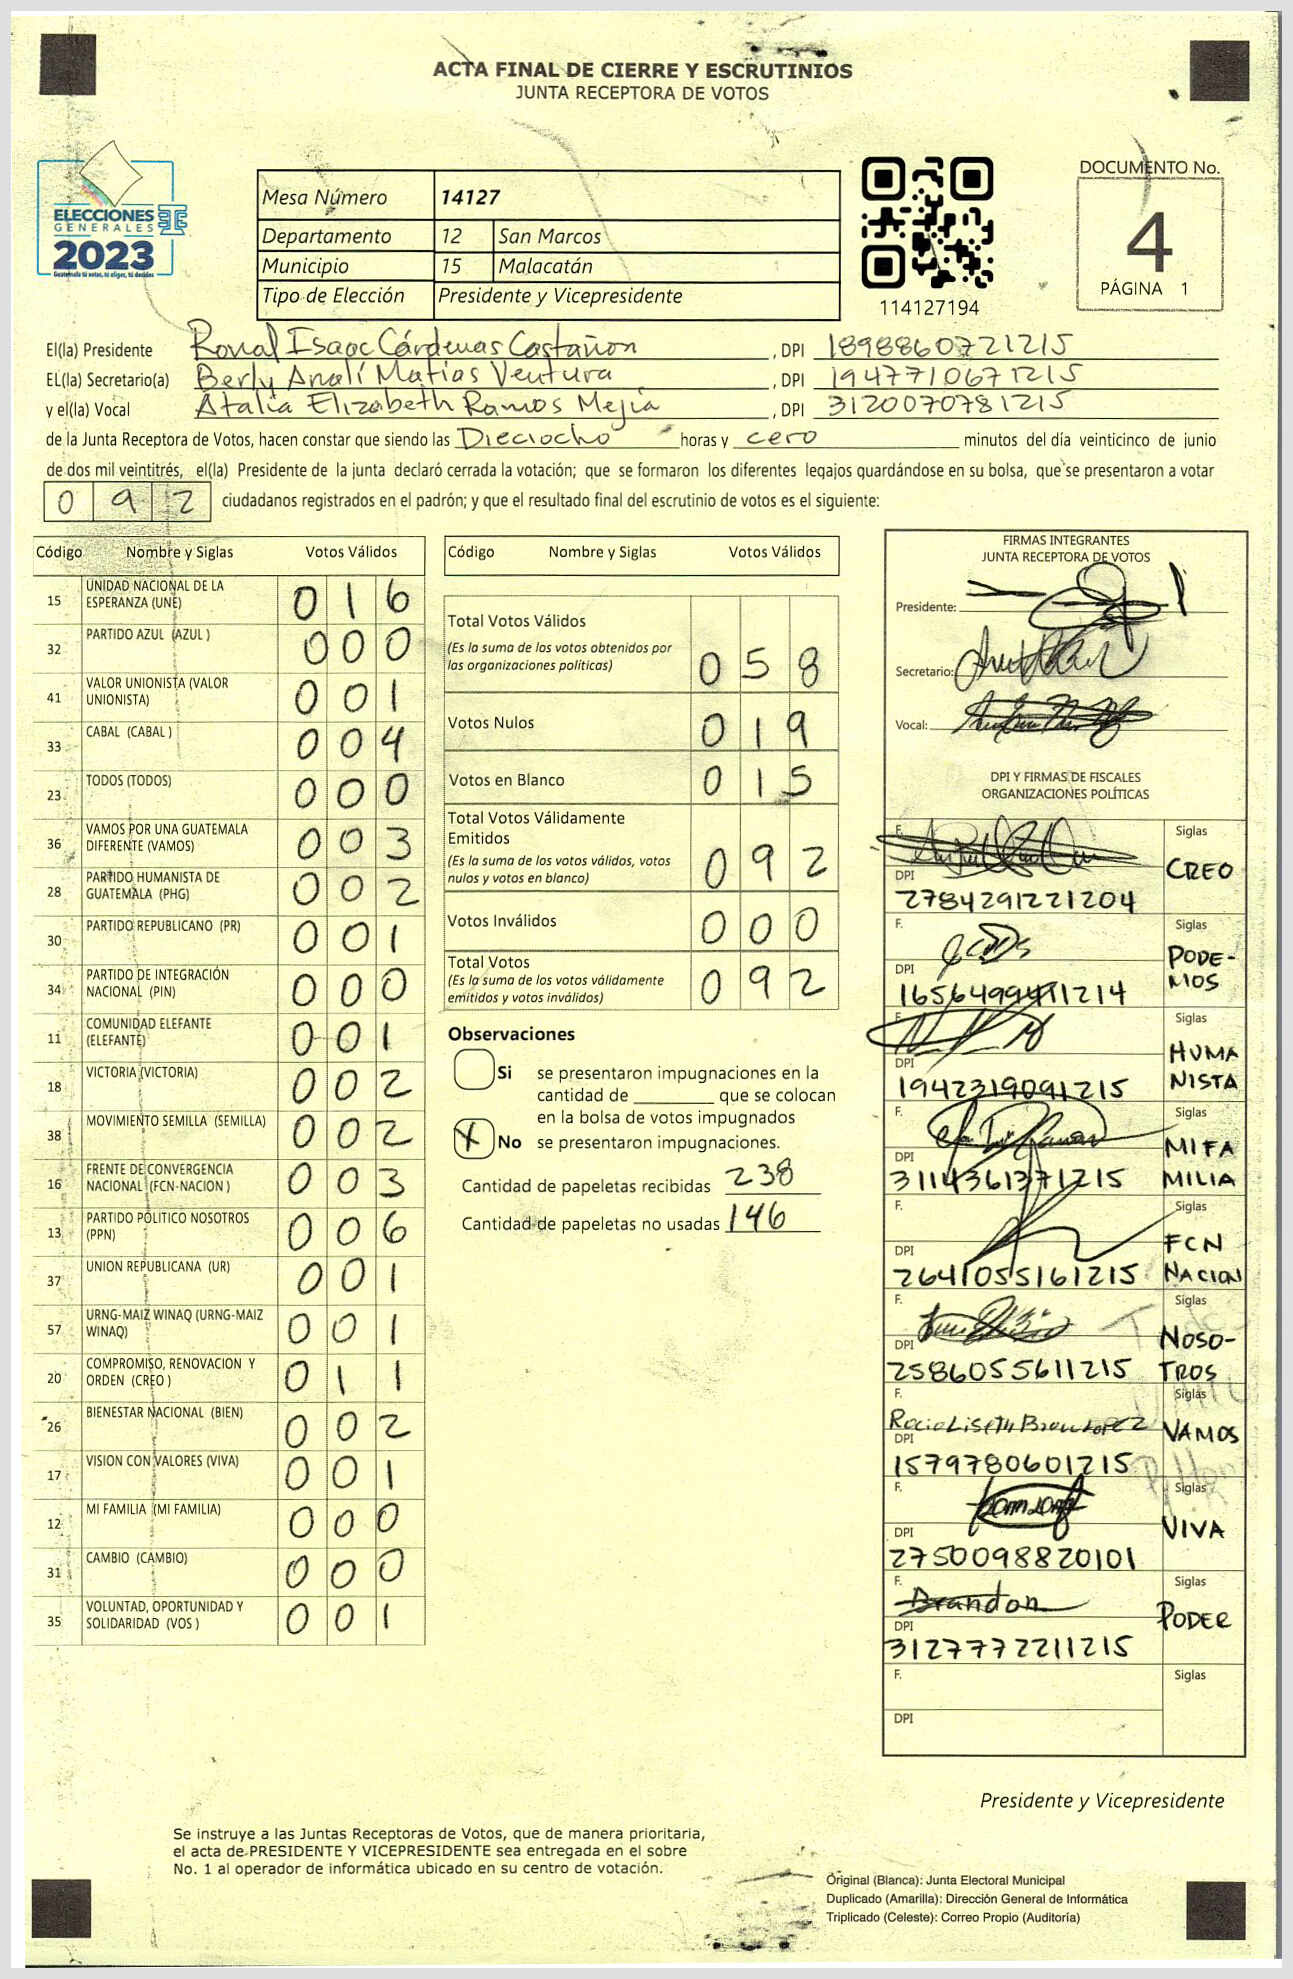 ACTA FINAL DE CIERRE Y ESCRUTINIOS
JUNTA RECEPTORA DE VOTOS
ELECCIONES
GENERALES
2023
Guatemala tú votas, tú eliges, tú decides
Mesa Número 14127
Departamento 12 San Marcos
Municipio 15 Malacatán
Tipo de Elección Presidente y Vicepresidente
114127194
DOCUMENTO No.
4
PÁGINA 1
El(la) Presidente Ronal Isaac Cárdenas Castañon, DPI 1898860721215
EL(la) Secretario(a) Berly Analí Matías Ventura, DPI 1947710671215
y el(la) Vocal Atalia Elizabeth Ramos Mejía, DPI 3120070781215
de la Junta Receptora de Votos, hacen constar que siendo las Dieciocho horas y cero minutos del día veinticinco de junio
de dos mil veintitrés, el(la) Presidente de la junta declaró cerrada la votación; que se formaron los diferentes legajos guardándose en su bolsa, que se presentaron a votar
0 9 2 ciudadanos registrados en el padrón; y que el resultado final del escrutinio de votos es el siguiente:
Código Nombre y Siglas Votos Válidos
15 UNIDAD NACIONAL DE LA ESPERANZA (UNE) 0 1 6
32 PARTIDO AZUL (AZUL ) 0 0 0
41 VALOR UNIONISTA (VALOR UNIONISTA) 0 0 1
33 CABAL (CABAL ) 0 0 4
23 TODOS (TODOS) 0 0 0
36 VAMOS POR UNA GUATEMALA DIFERENTE (VAMOS) 0 0 3
28 PARTIDO HUMANISTA DE GUATEMALA (PHG) 0 0 2
30 PARTIDO REPUBLICANO (PR) 0 0 1
34 PARTIDO DE INTEGRACIÓN NACIONAL (PIN) 0 0 0
11 COMUNIDAD ELEFANTE (ELEFANTE) 0 0 1
18 VICTORIA (VICTORIA) 0 0 2
38 MOVIMIENTO SEMILLA (SEMILLA) 0 0 2
16 FRENTE DE CONVERGENCIA NACIONAL (FCN-NACION ) 0 0 3
13 PARTIDO POLITICO NOSOTROS (PPN) 0 0 6
37 UNION REPUBLICANA (UR) 0 0 1
57 URNG-MAIZ WINAQ (URNG-MAIZ WINAQ) 0 0 1
20 COMPROMISO, RENOVACION Y ORDEN (CREO ) 0 1 1
26 BIENESTAR NACIONAL (BIEN) 0 0 2
17 VISION CON VALORES (VIVA) 0 0 1
12 MI FAMILIA (MI FAMILIA) 0 0 0
31 CAMBIO (CAMBIO) 0 0 0
35 VOLUNTAD, OPORTUNIDAD Y SOLIDARIDAD (VOS ) 0 0 1
Código Nombre y Siglas Votos Válidos
Total Votos Válidos
(Es la suma de los votos obtenidos por
las organizaciones políticas) 0 5 8
Votos Nulos 0 1 9
Votos en Blanco 0 1 5
Total Votos Válidamente
Emitidos
(Es la suma de los votos válidos, votos
nulos y votos en blanco) 0 9 2
Votos Inválidos 0 0 0
Total Votos
(Es la suma de los votos válidamente
emitidos y votos inválidos) 0 9 2
Observaciones
Si se presentaron impugnaciones en la
cantidad de ________ que se colocan
en la bolsa de votos impugnados
X No se presentaron impugnaciones.
Cantidad de papeletas recibidas 238
Cantidad de papeletas no usadas 146
FIRMAS INTEGRANTES
JUNTA RECEPTORA DE VOTOS
Presidente:
Secretario:
Vocal:
DPI Y FIRMAS DE FISCALES
ORGANIZACIONES POLÍTICAS
F. Siglas
DPI CREO
2784291221204
F. Siglas
DPI PODE-
MOS
F. Siglas
DPI HUMA
1942319091215 NISTA
F. Siglas
DPI MIFA
3114361371215 MILIA
F. Siglas
DPI FCN
2641055161215 NACION
F. Siglas
DPI NOSO-
2586055611215 TROS
F. Siglas
DPI VAMOS
1579780601215
F. Siglas
DPI VIVA
2750098820101
F. Brandon Siglas
DPI PODER
3127772211215
F. Siglas
DPI
Presidente y Vicepresidente
Se instruye a las Juntas Receptoras de Votos, que de manera prioritaria,
el acta de PRESIDENTE Y VICEPRESIDENTE sea entregada en el sobre
No. 1 al operador de informática ubicado en su centro de votación.
Original (Blanca): Junta Electoral Municipal
Duplicado (Amarilla): Dirección General de Informática
Triplicado (Celeste): Correo Propio (Auditoría)